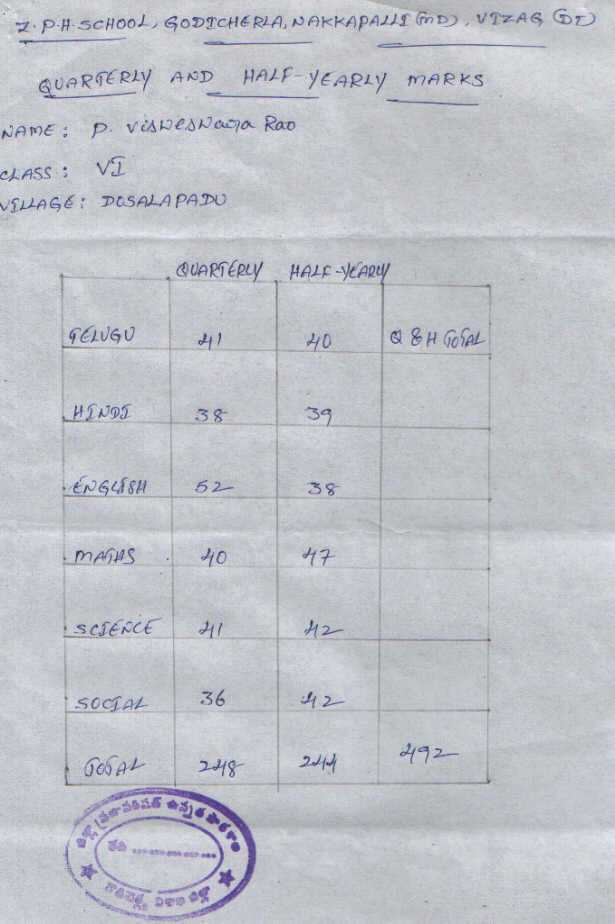 Z.P.H.SCHOOL, GODICHERLA, NAKKAPALLI (MD), VIZAG (DT)
QUARTERLY AND HALF-YEARLY MARKS
NAME: P. Visweswara Rao
CLASS: VI
VILLAGE: DOSALAPADU
QUARTERLY HALF-YEARLY
TELUGU 41 40 Q & H TOTAL
HINDI 38 39
ENGLISH 52 38
MATHS 40 47
SCIENCE 41 42
SOCIAL 36 42
TOTAL 248 244 492
జిల్లా ప్రజాపరిషత్ ఉన్నత పాఠశాల